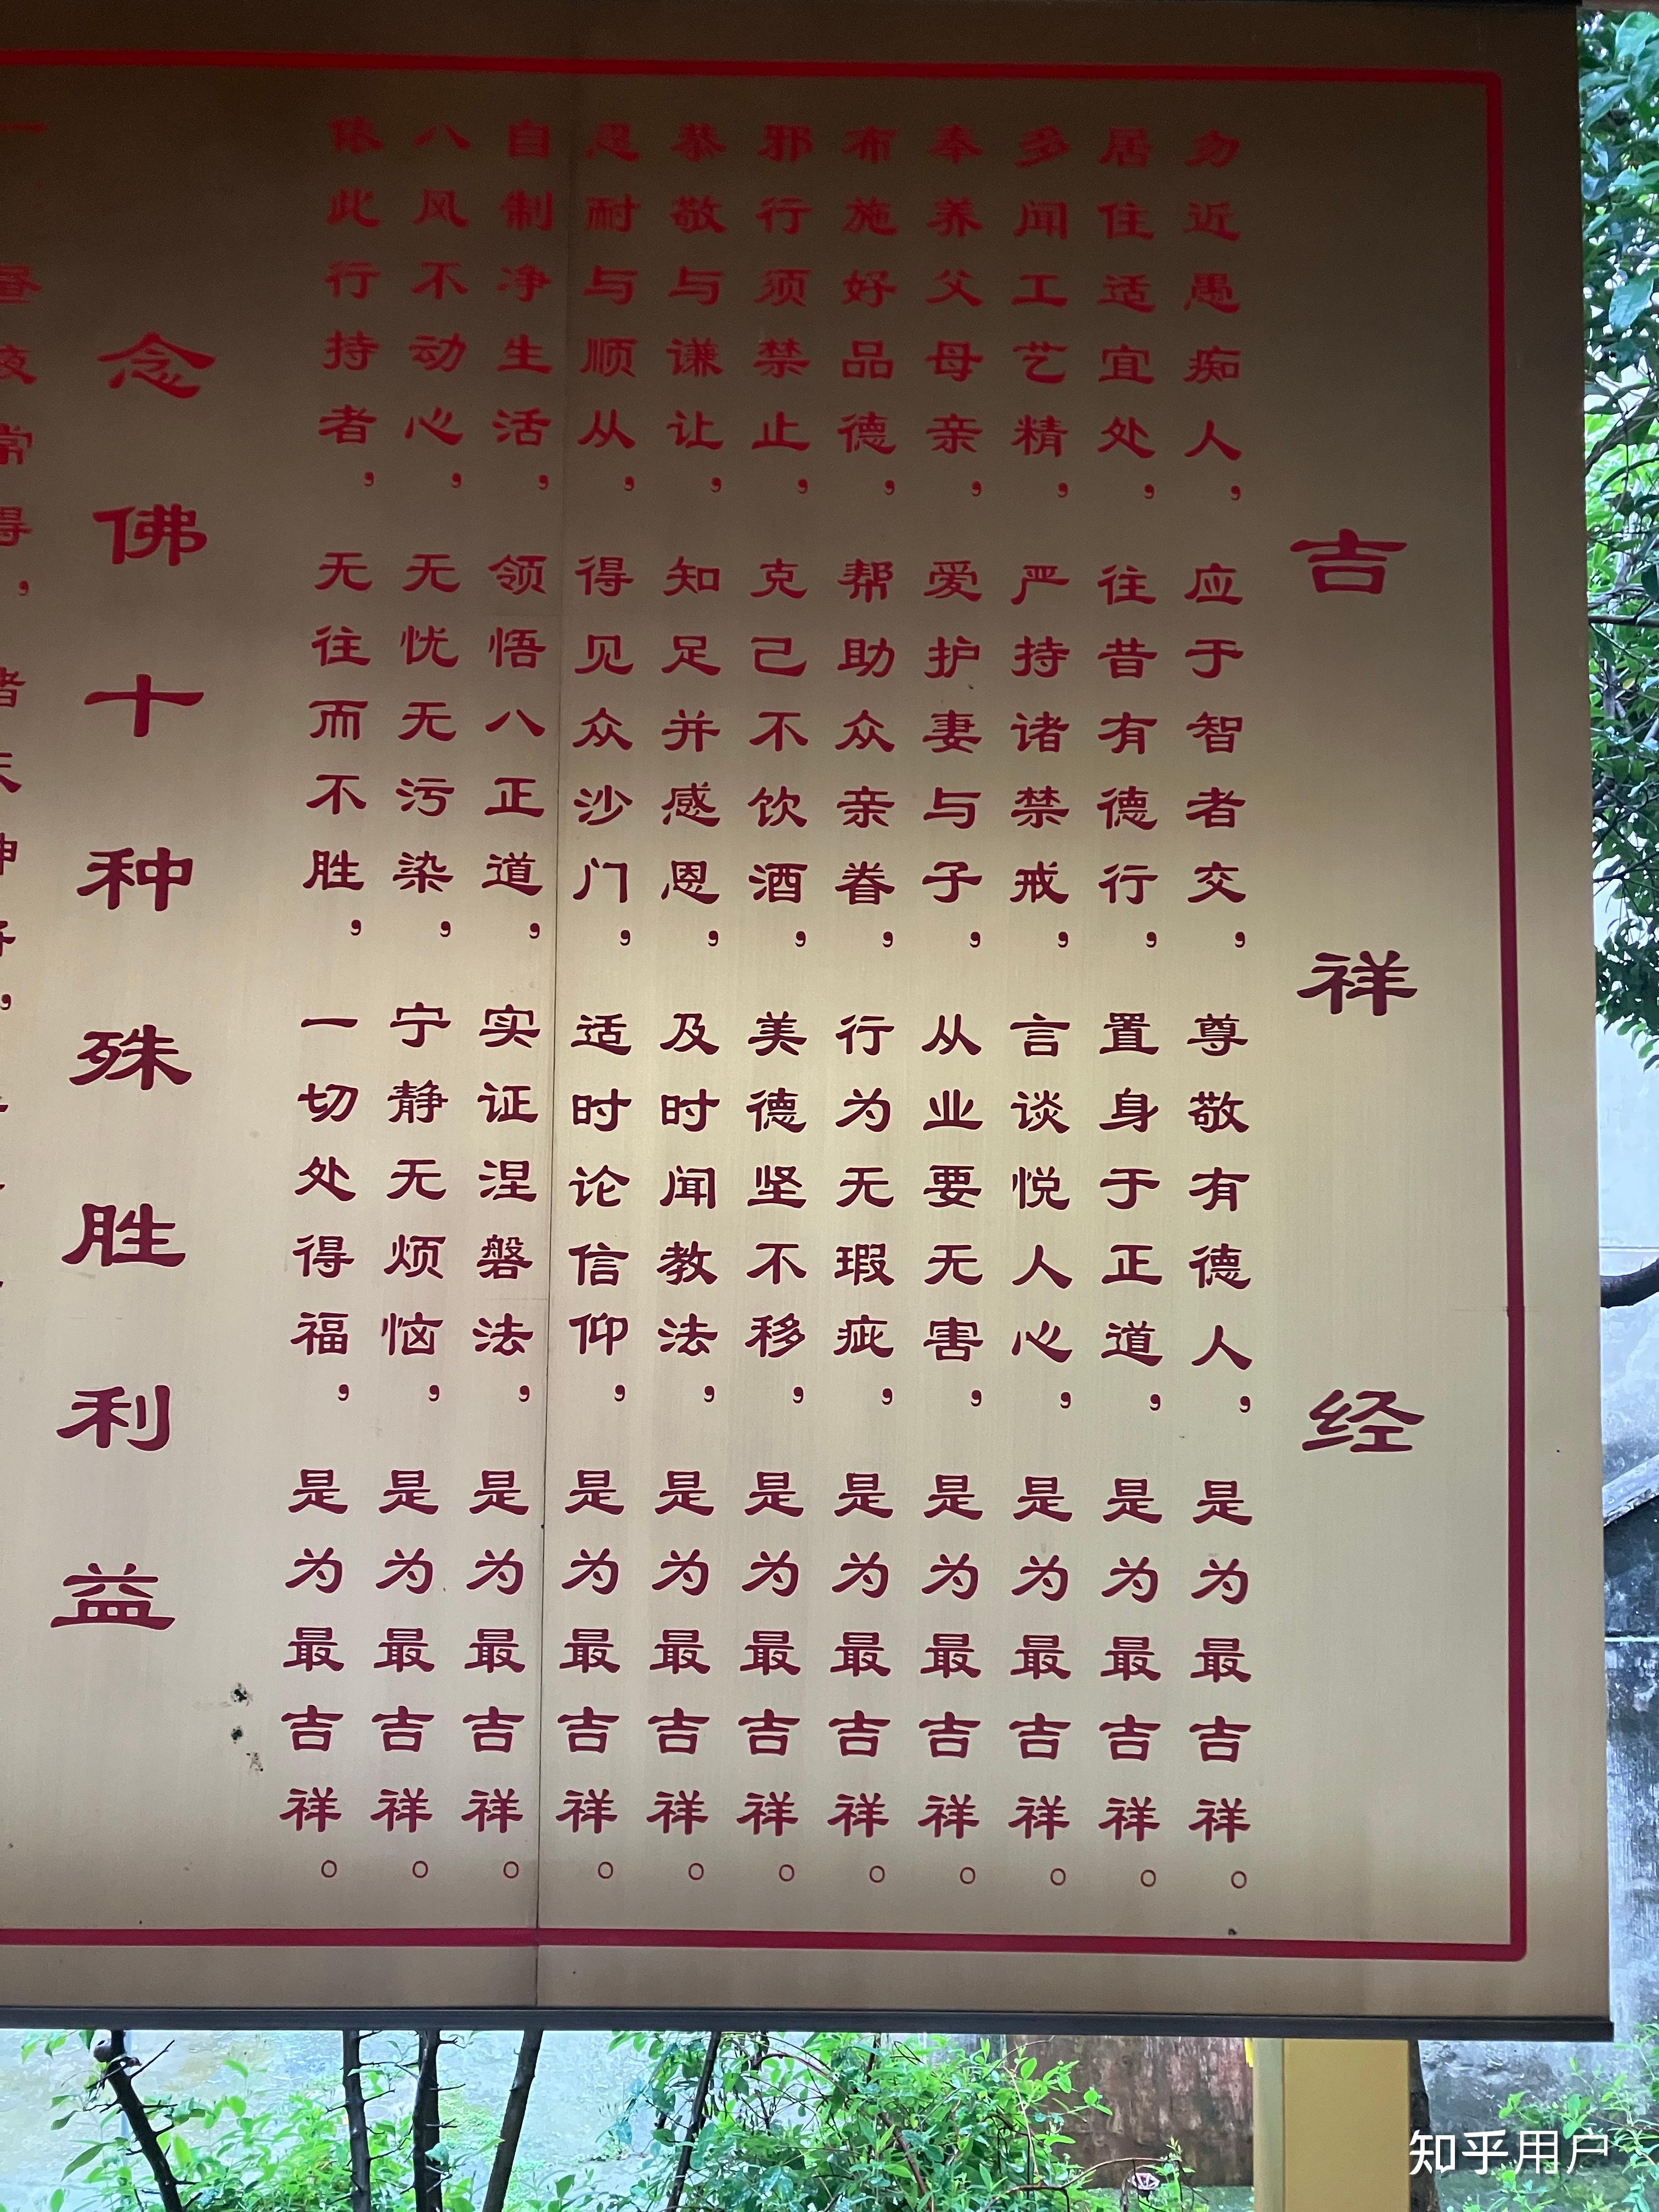 吉祥经
勿近愚痴人，应于智者交，尊敬有德人，是为最吉祥。
居住适宜处，往昔有德行，置身于正道，是为最吉祥。
多闻工艺精，严持诸禁戒，言谈悦人心，是为最吉祥。
奉养父母亲，爱护妻与子，从业要无害，是为最吉祥。
布施好品德，帮助众亲眷，行为无瑕疵，是为最吉祥。
邪行须禁止，克己不饮酒，美德坚不移，是为最吉祥。
恭敬与谦让，知足并感恩，及时闻教法，是为最吉祥。
忍耐与顺从，得见众沙门，适时论信仰，是为最吉祥。
自制净生活，领悟八正道，实证涅磐法，是为最吉祥。
八风不动心，无忧无污染，宁静无烦恼，是为最吉祥。
依此行持者，无往而不胜，一切处得福，是为最吉祥。
念佛十种殊胜利益
知乎用户